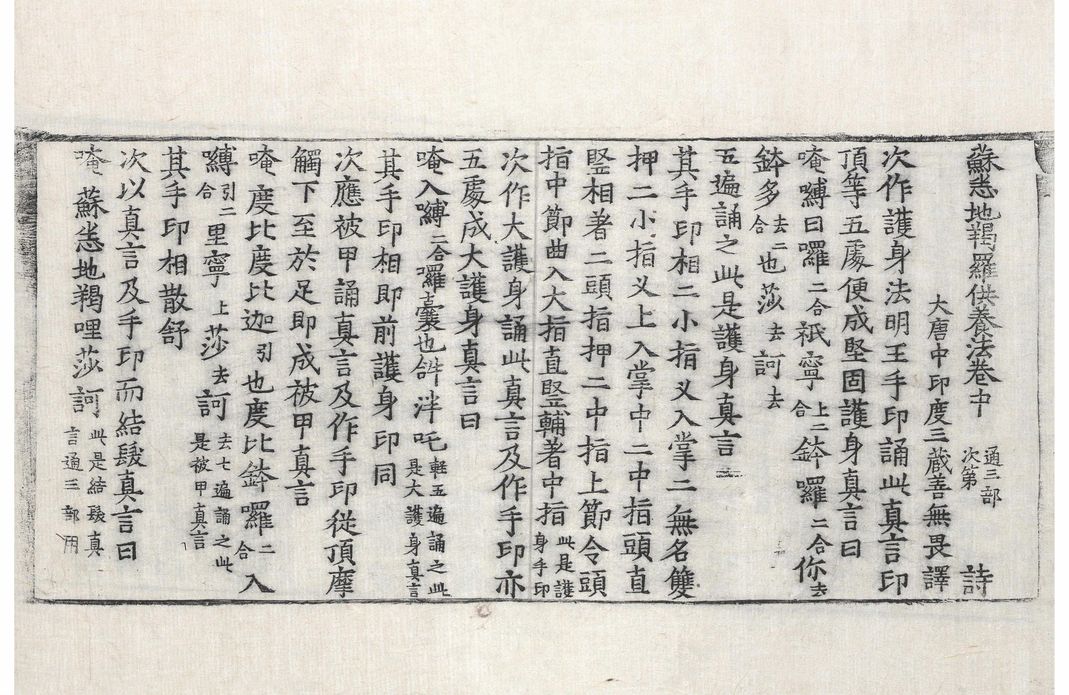 蘇悉地羯羅供養法卷中 通三部次第 詩
大唐中印度三蔵善無畏譯
次作護身法明王手印誦此真言印
頂等五處便成堅固護身真言曰
唵嚩曰囉二合祇寧上二合鉢囉二合你去
鉢多去二合也莎去訶去
五遍誦之此是護身真言
其手印相二小指叉入掌二無名雙
押二小指叉上入掌中二中指頭直
竪相著二頭指押二中指上節令頭
指中節曲入大指直竪輔著中指此是護身手印
次作大護身誦此真言及作手印亦
五處成大護身真言曰
唵入嚩二合囉囊也𤙖泮吒輕五遍誦之此是大護身真言
其手印相即前護身印同
次應被甲誦真言及作手印從頂摩
觸下至於足即成被甲真言
唵度比度比迦引也度比鉢囉二合入
嚩引二合里寧上莎去訶去七遍誦之此是被甲真言
其手印相散舒
次以真言及手印而結髮真言曰
唵蘇悉地羯哩莎訶此是結髮真言通三部用